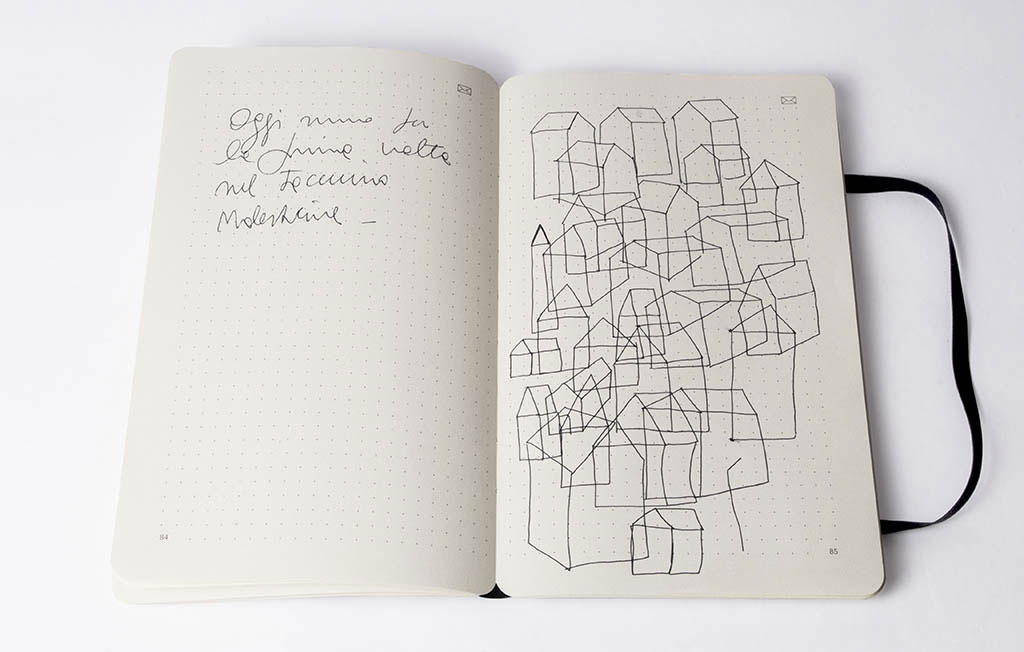 Oggi
la prima volta
nel Taccuino
Moleskine _
84
85